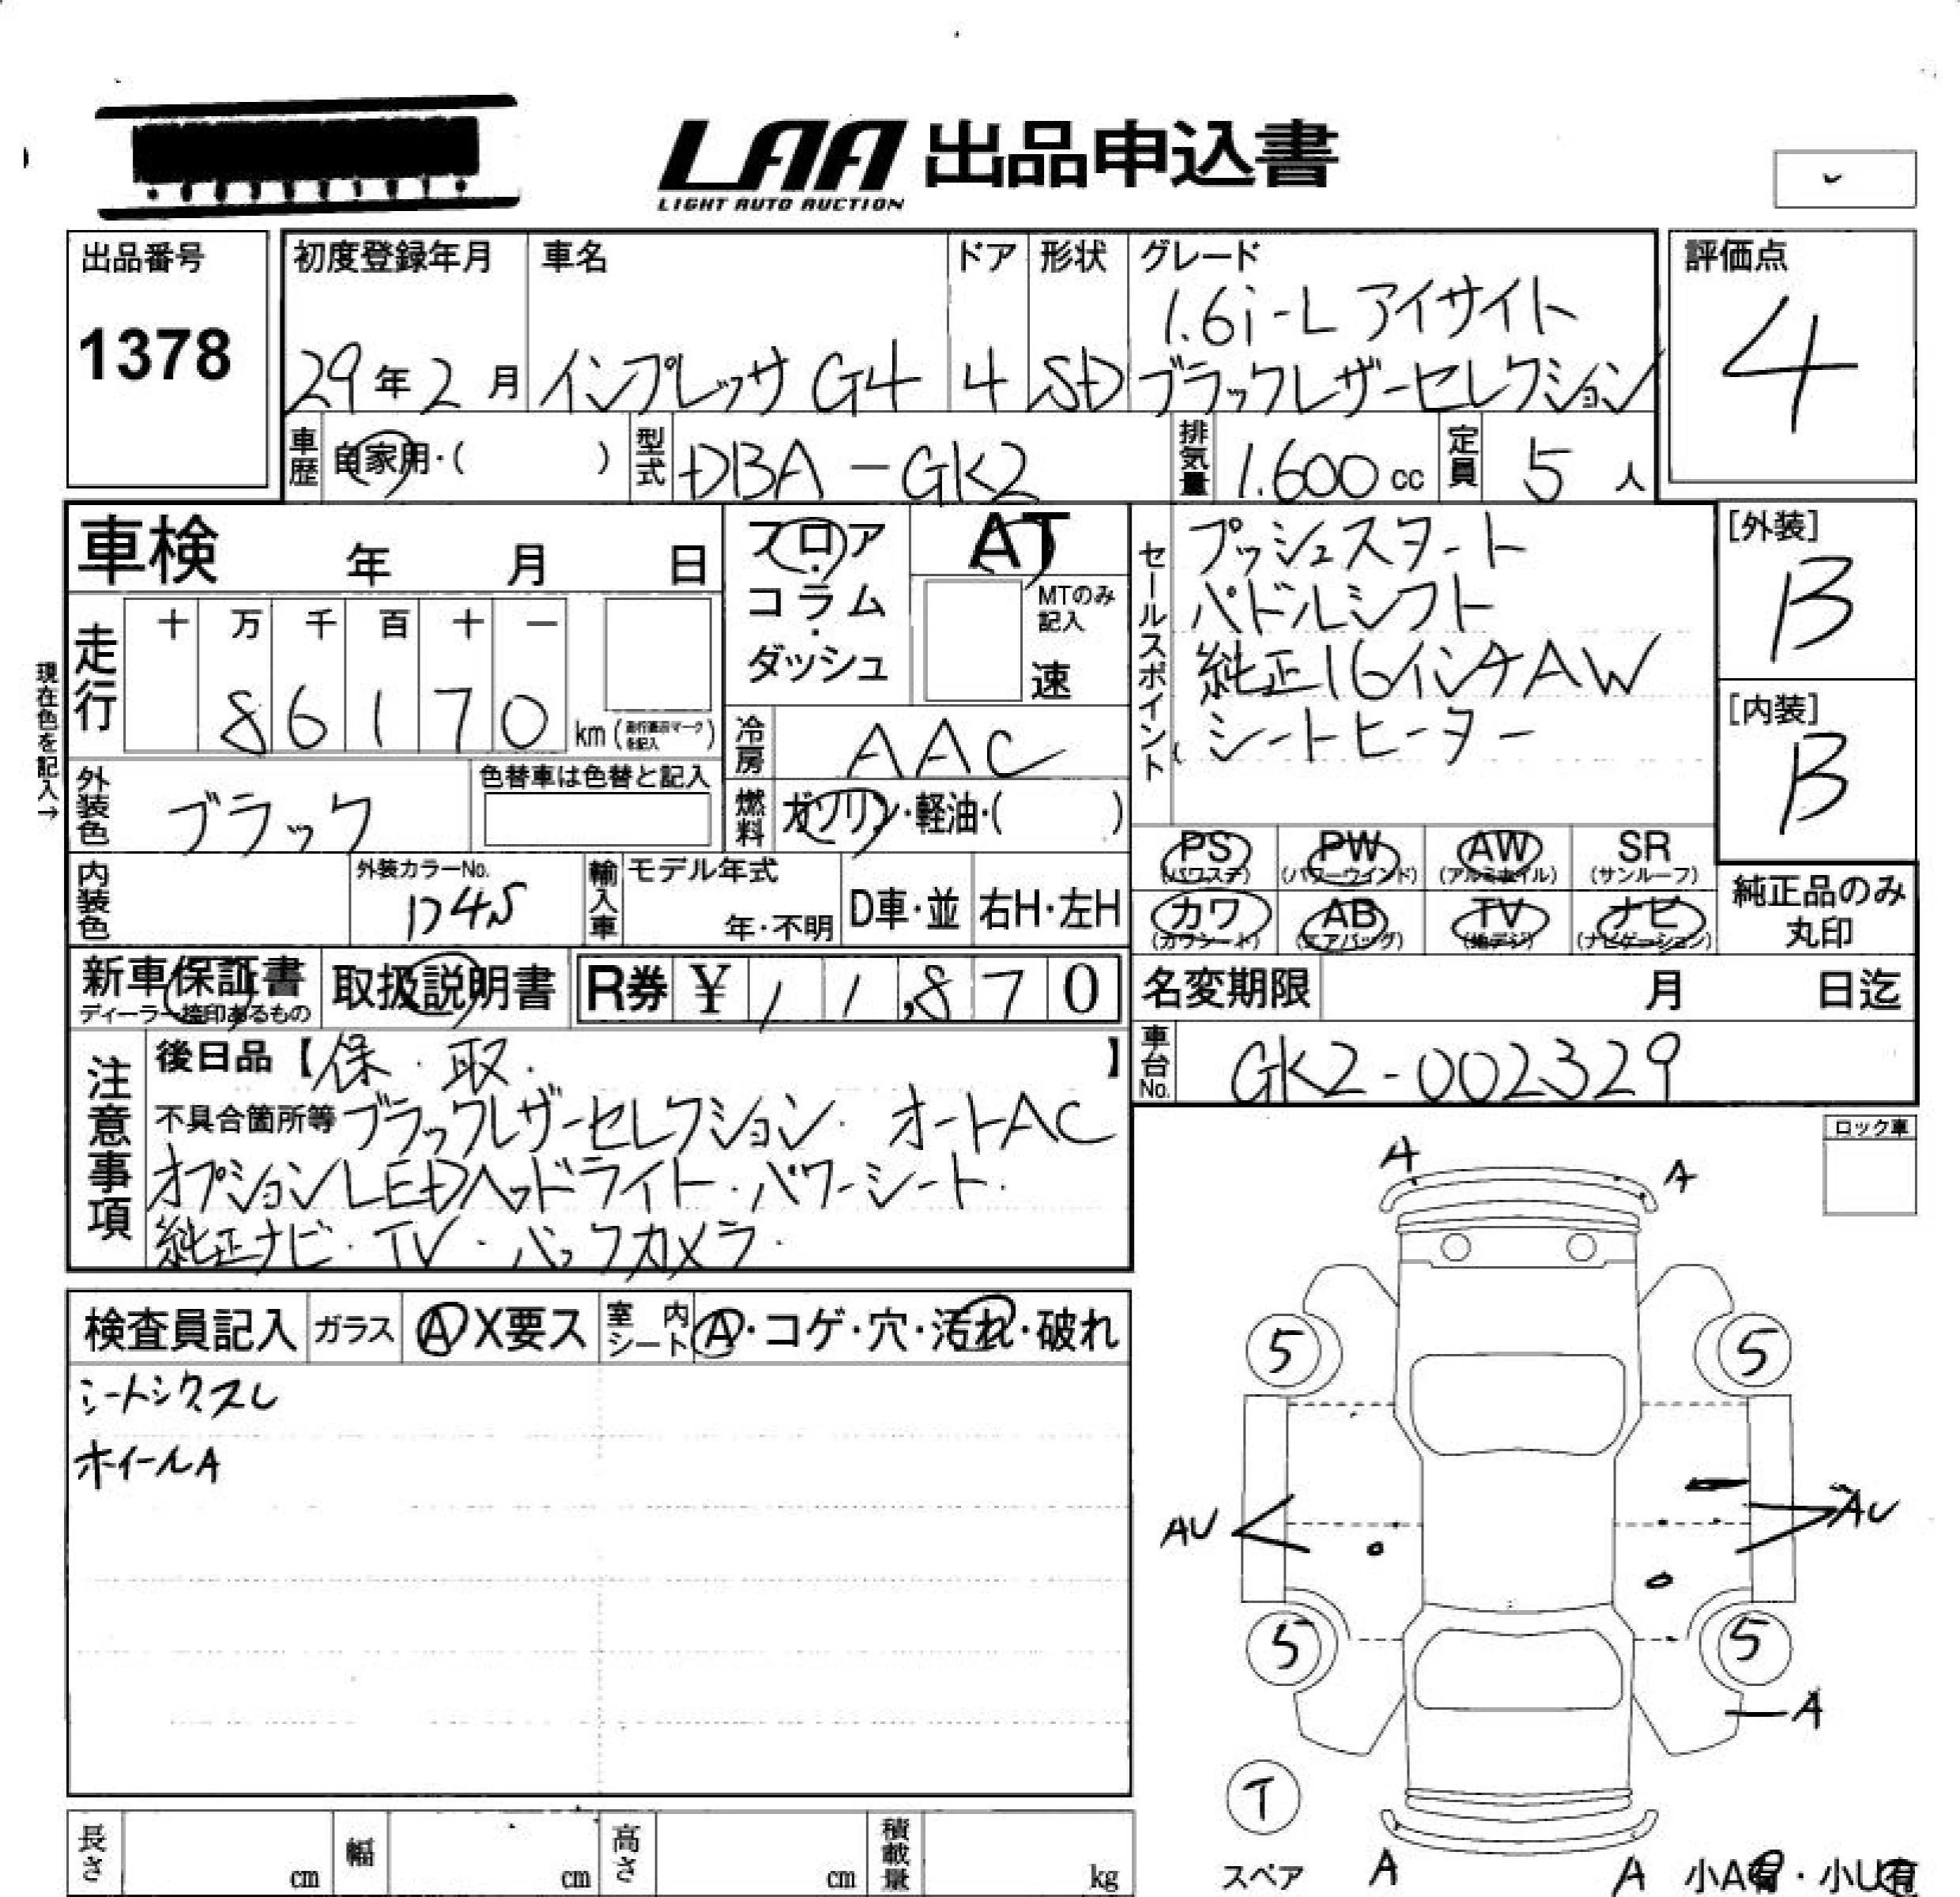 LAA 出品申込書
LIGHT AUTO AUCTION
出品番号
1378
初度登録年月
29年2月
車名
インプレッサ G4
ドア
4
形状
SD
グレード
1.6i-L アイサイト
ブラックレザーセレクション
評価点
4
車歴 自家用・( )
型式 DBA-GK2
排気量 1.600cc
定員 5人
車検 年 月 日
フロア・コラム・ダッシュ
AT
MTのみ記入
速
セールスポイント
プッシュスタート
パドルシフト
純正16インチAW
シートヒーター
[外装]
B
[内装]
B
現在色を記入→
走行
十 万 千 百 十 一
8 6 1 7 0 km
冷房 AAC
外装色 ブラック
色替車は色替と記入
燃料 ガソリン・軽油・( )
PS (パワステ)
PW (パワーウインド)
AW (アルミホイル)
SR (サンルーフ)
カワ (カワシート)
AB (エアバッグ)
TV (地デジ)
ナビ (ナビゲーション)
純正品のみ丸印
内装色
外装カラーNo.
D4S
輸入車
モデル年式
年・不明
D車・並
右H・左H
新車保証書
ディーラー捺印あるもの
取扱説明書
R券 ¥ 11,870
名変期限 月 日迄
車台No. GK2-002329
注意事項
後日品【保・取. 】
不具合箇所等 ブラックレザーセレクション・オートAC
オプションLEDヘッドライト・パワーシート・
純正ナビ・TV・バックカメラ・
ロック車
検査員記入
ガラス A X要ス
室内シート A・コゲ・穴・汚れ・破れ
シートシワスレ
ホイールA
A
A
5
5
AU
AU
5
5
A
T
スペア
A
A
小A有・小U有
長さ cm
幅 cm
高さ cm
積載量 kg